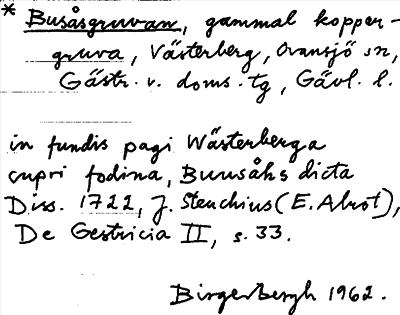 * Busåsgruvan, gammal koppar-
gruva, Västerberg, Ovansjö sn,
Gästr. v. doms. tg, Gävl. l.
in fundis pagi Wästerberga
cupri fodina, Buusåhs dicta
Diss. 1722, J. Stenchius (E. Alrot),
De Gestricia II, s. 33.
Birger Bergh 1962.